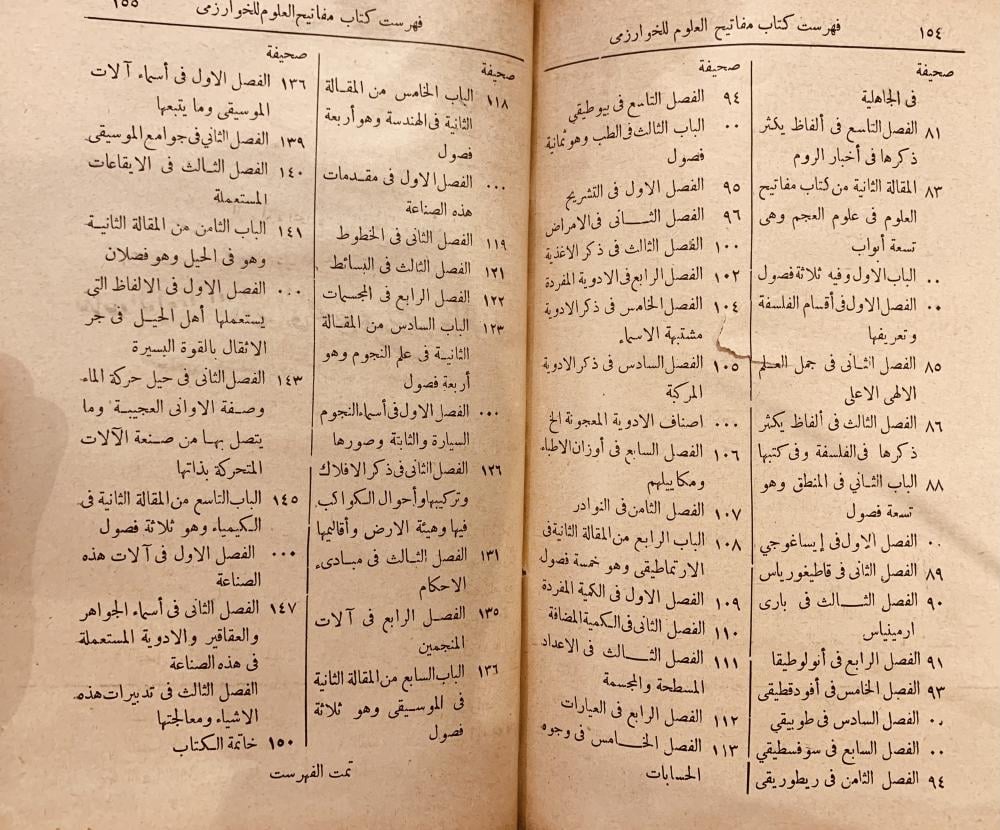 ١٥٤
فهرست كتاب مفاتيح العلوم للخوارزمى
صحيفة
فى الجاهلية
٨١ الفصل التاسع فى ألفاظ يكثر
ذكرها فى أخبار الروم
٨٣ المقالة الثانية من كتاب مفاتيح
العلوم فى علوم العجم وهى
تسعة أبواب
٠٠ الباب الاول وفيه ثلاثة فصول
٠٠ الفصل الاول فى أقسام الفلسفة
وتعريفها
٨٥ الفصل الثانى فى جمل العلم
الالهى الاعلى
٨٦ الفصل الثالث فى ألفاظ يكثر
ذكرها فى الفلسفة وفى كتبها
٨٨ الباب الثانى فى المنطق وهو
تسعة فصول
٠٠ الفصل الاول فى إيساغوجي
٨٩ الفصل الثانى فى قاطيغورياس
٩٠ الفصل الثالث فى بارى
ارمينياس
٩١ الفصل الرابع فى أنولوطيقا
٩٣ الفصل الخامس فى أفودقطيقى
٠٠ الفصل السادس فى طوبيقي
٠٠ الفصل السابع فى سوفسطيقي
٩٤ الفصل الثامن فى ريطوريقى
صحيفة
٩٤ الفصل التاسع فى بيوطيقي
٠٠ الباب الثالث فى الطب وهو ثمانية
فصول
٩٥ الفصل الاول فى التشريح
٩٦ الفصل الثانى فى الامراض
١٠٠ الفصل الثالث فى ذكر الاغذية
١٠٢ الفصل الرابع فى الادوية المفردة
١٠٤ الفصل الخامس فى ذكر الادوية
مشتبهة الاسماء
١٠٥ الفصل السادس فى ذكر الادوية
المركبة
٠٠٠ اصناف الادوية المعجونة الخ
١٠٦ الفصل السابع فى أوزان الاطباء
ومكاييلهم
١٠٧ الفصل الثامن فى النوادر
١٠٨ الباب الرابع من المقالة الثانية فى
الارتماطيقى وهو خمسة فصول
١٠٩ الفصل الاول فى الكمية المفردة
١١٠ الفصل الثانى فى الكمية المضافة
١١١ الفصل الثالث فى الاعداد
المسطحة والمجسمة
١١٢ الفصل الرابع فى العيارات
١١٣ الفصل الخامس فى وجوه
الحسابات
فهرست كتاب مفاتيح العلوم للخوارزمى
١٥٥
صحيفة
١١٨ الباب الخامس من المقالة
الثانية فى الهندسة وهو أربعة
فصول
٠٠٠ الفصل الاول فى مقدمات
هذه الصناعة
١١٩ الفصل الثانى فى الخطوط
١٢١ الفصل الثالث فى البسائط
١٢٢ الفصل الرابع فى المجسمات
١٢٣ الباب السادس من المقالة
الثانية فى علم النجوم وهو
أربعة فصول
٠٠٠ الفصل الاول فى أسماء النجوم
السيارة والثابتة وصورها
١٢٦ الفصل الثانى فى ذكر الافلاك
وتركيبها وأحوال الكواكب
فيها وهيئة الارض وأقاليمها
١٣١ الفصل الثالث فى مبادىء
الاحكام
١٣٥ الفصل الرابع فى آلات
المنجمين
١٣٦ الباب السابع من المقالة الثانية
فى الموسيقى وهو ثلاثة
فصول
صحيفة
١٣٦ الفصل الاول فى أسماء آلات
الموسيقى وما يتبعها
١٣٩ الفصل الثاني فى جوامع الموسيقى
١٤٠ الفصل الثالث فى الايقاعات
المستعملة
١٤١ الباب الثامن من المقالة الثانية
وهو فى الحيل وهو فصلان
٠٠٠ الفصل الاول فى الالفاظ التى
يستعملها أهل الحيل فى جر
الاثقال بالقوة اليسيرة
١٤٣ الفصل الثانى فى حيل حركة الماء
وصفة الاوانى العجيبة وما
يتصل بها من صنعة الآلات
المتحركة بذاتها
١٤٥ الباب التاسع من المقالة الثانية فى
الكيمياء وهو ثلاثة فصول
٠٠٠ الفصل الاول فى آلات هذه
الصناعة
١٤٧ الفصل الثانى فى أسماء الجواهر
والعقاقير والادوية المستعملة
فى هذه الصناعة
الفصل الثالث فى تدبيرات هذه
الاشياء ومعالجتها
١٥٠ خاتمة الكتاب
تمت الفهرست